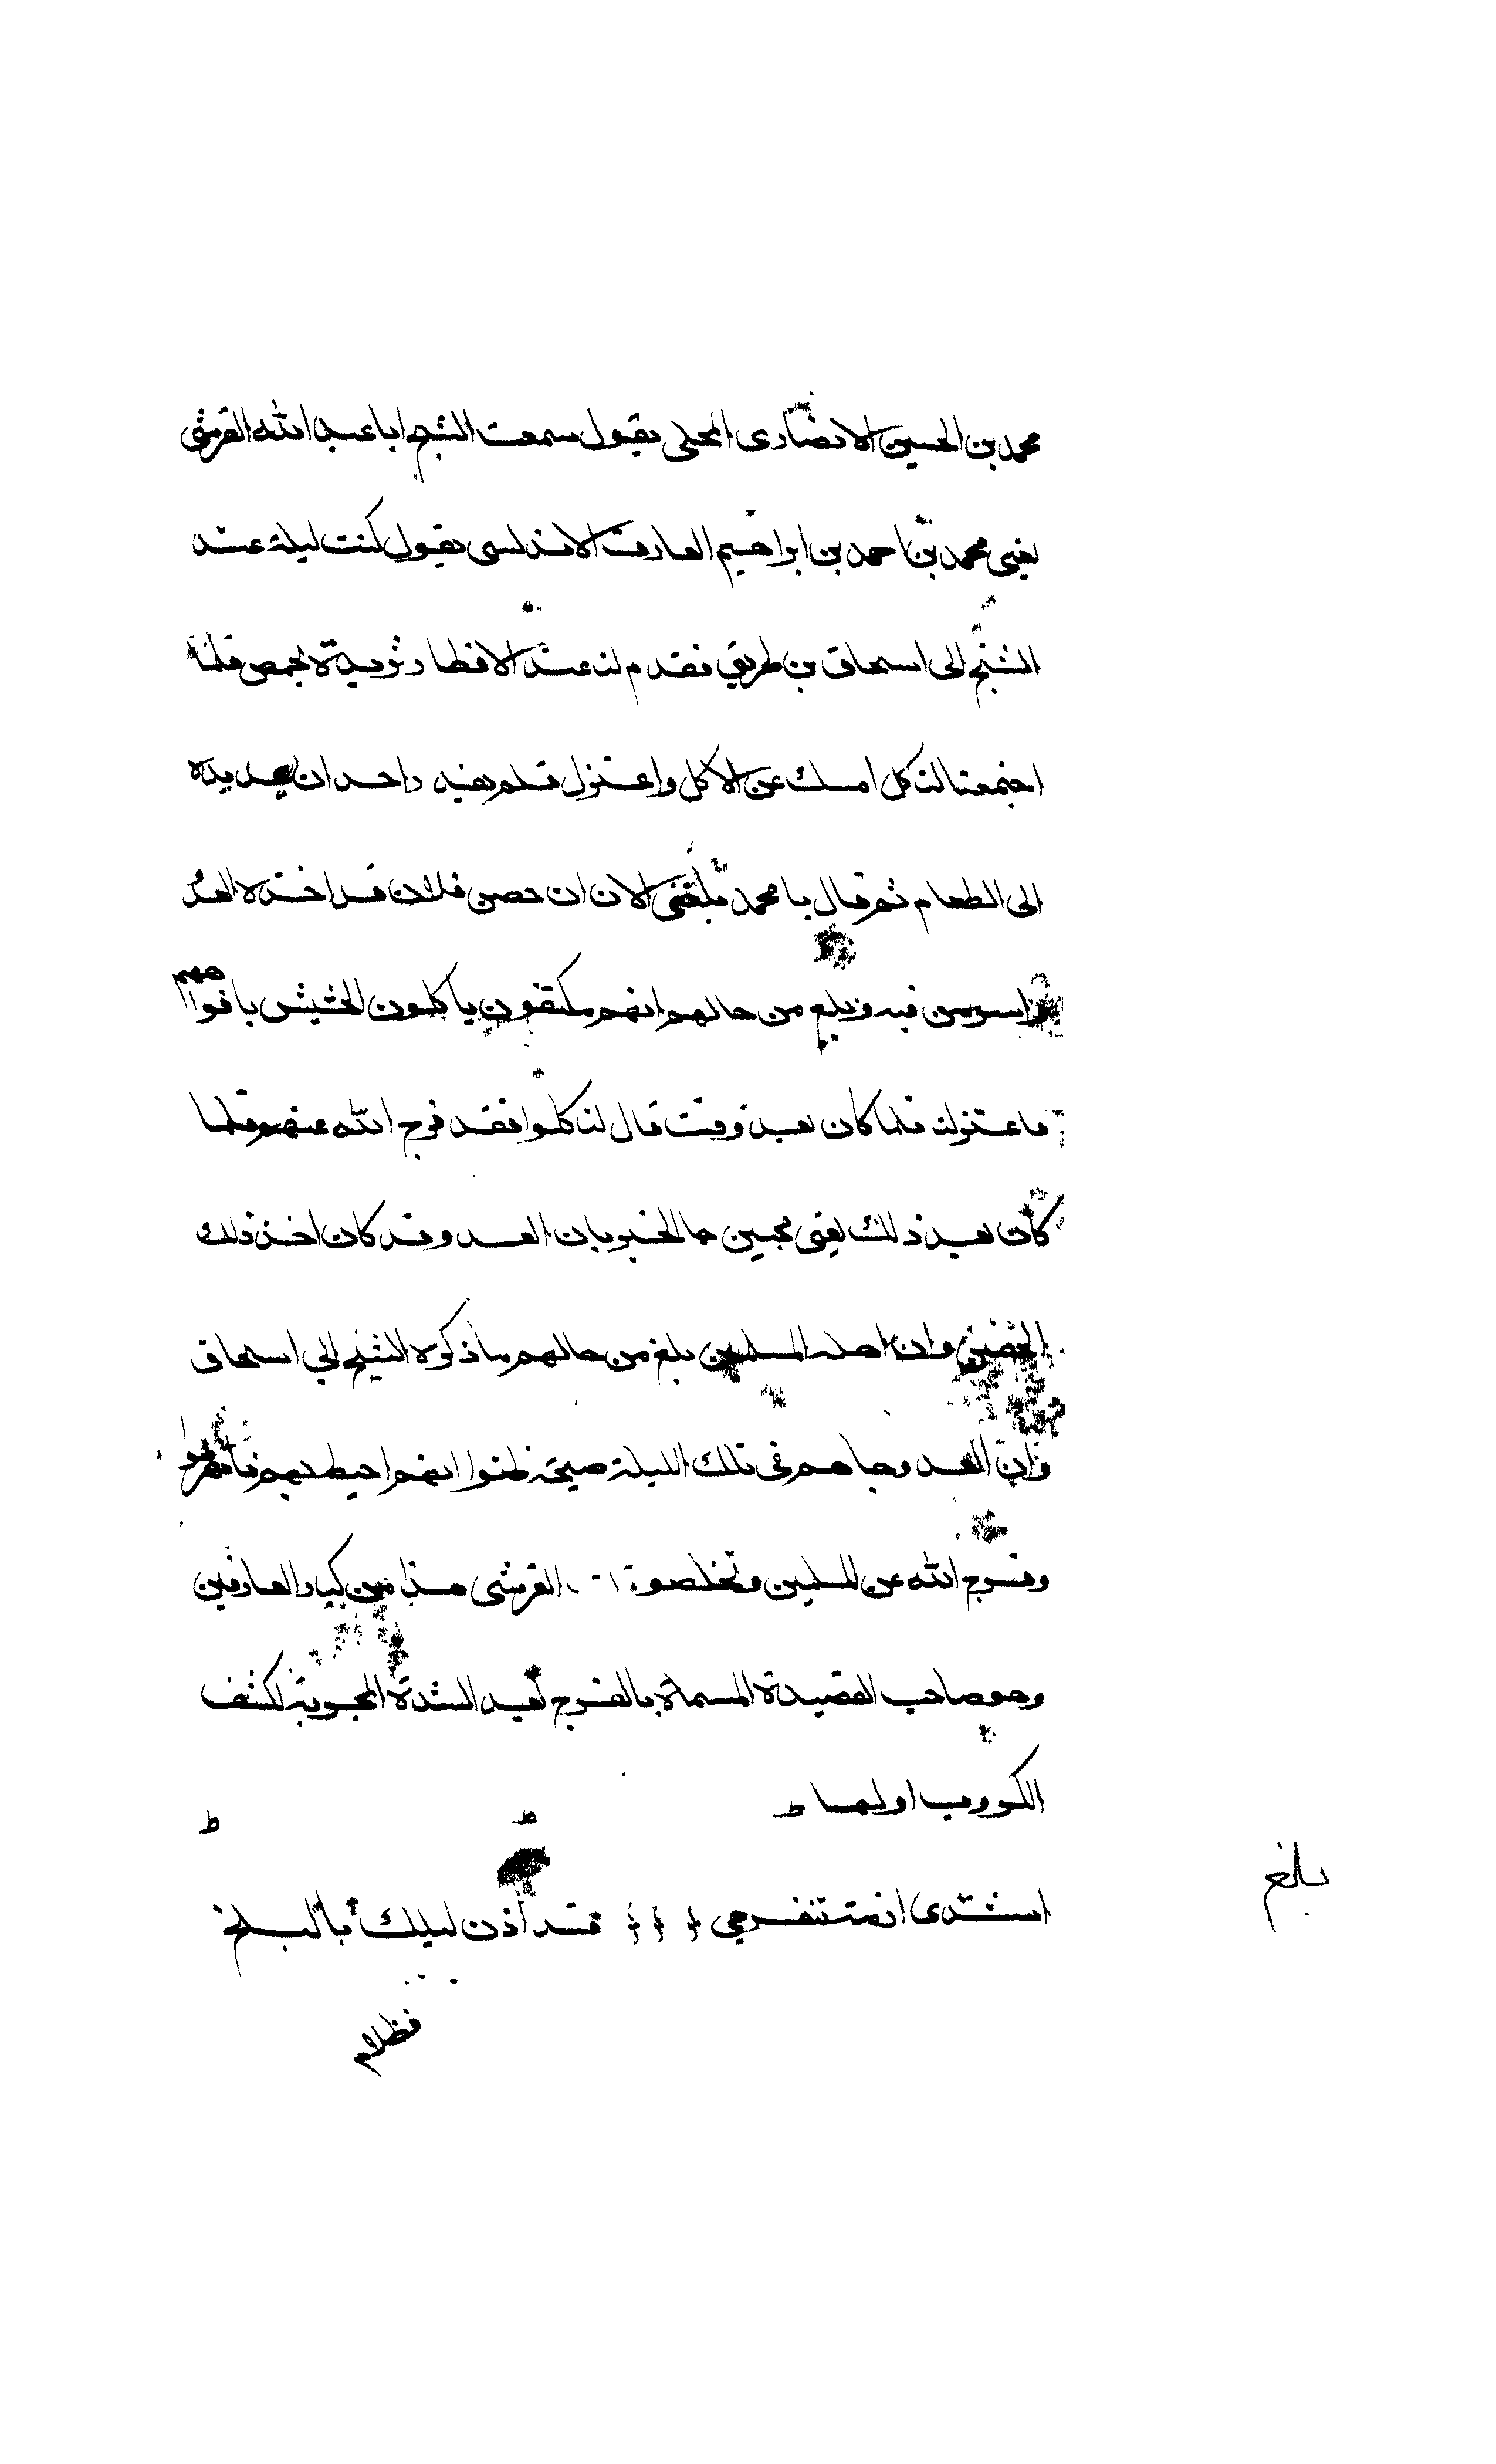 محمد بن الحسين الانصارى المحلى يقول سمعت الشيخ ابا عبد الله القرشى
يعنى محمد بن احمد بن ابراهيم العارف الاندلسى يقول كنت ليلة عند
الشيخ ابى اسحاق بن طريق فقدم لنا عند الافطار ثريدة بحمص فلما
اجتمعنا لناكل امسك عن الاكل واعتزل فلم يقدر احد ان يمد يده
الى الطعام ثم قال يا محمد بلغنى الان ان حصن فلان قد اخذه العدو
واسر من فيه وبلغ من حالهم انهم مكتفون ياكلون الحشيش بافواههم
فاعتزلنا فلما كان بعد وقت قال لنا كلوا فقد فرج الله عنهم فلما
كان بعد ذلك بعنى جا الخبر بان العدو قد كان اخذ ذلك
الحصن وان اهله المسلمين بلغ من حالهم ما ذكره الشيخ ابى اسحاق
وان العدو جاهم فى تلك الليلة صيحة ظنوا انهم احيط بهم فانهزموا
وفرج الله عن المسلمين وتخلصوا القرشى هذا من كبار العارفين
وهو صاحب القصيدة المسماة بالفرج بعد الشدة المجربة لكشف
الكروب اولها
اشتدى ازمة تنفرجى قد اذن ليلك بالبلج
فظلام
بلغ